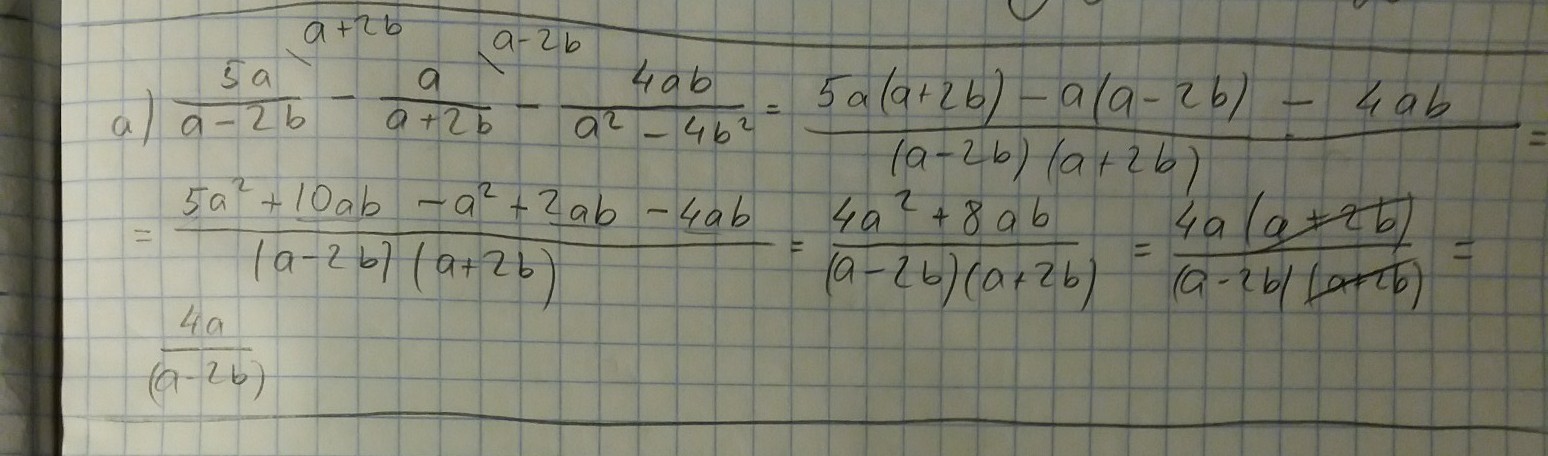 a+2b a-2b
a) 5a/(a-2b) - a/(a+2b) - 4ab/(a² - 4b²) = (5a(a+2b) - a(a-2b) - 4ab)/((a-2b)(a+2b)) =
= (5a² + 10ab - a² + 2ab - 4ab)/((a-2b)(a+2b)) = (4a² + 8ab)/((a-2b)(a+2b)) = (4a(a+2b))/((a-2b)(a+2b)) =
4a/(a-2b)